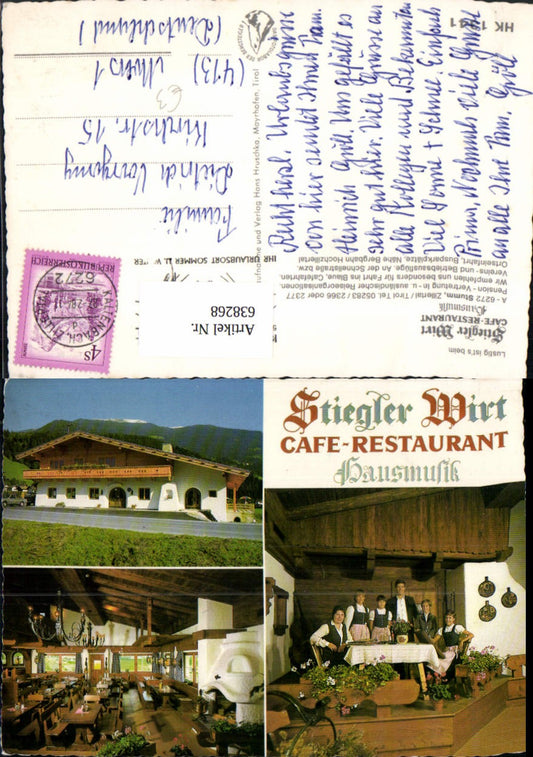 HK 1941
Recht herzl. Urlaubsgrüsse
von hier sendet Ihnen Fam.
Heinrich Gröll. Uns gefällt es
sehr gut hier. Viele Grüsse an
alle Kollegen und Bekannten
Viel Sonne + Schnee. Einfach
Prima. Nochmals viele Grüsse
an alle Ihre Fam. Gröll
Aufnahme und Verlag Hans Hruschka, Mayrhofen, Tirol
Familie
Dietrich
Kirchstr. 15
(413) Moers 1
(Deutschland)
€3
REPUBLIK ÖSTERREICH
6272
4S
IHR URLAUBSORT SOMMER U. WINTER
Artikel Nr.
638268
Lustig ist's beim
Stiegler Wirt
CAFE-RESTAURANT
Hausmusik
A-6272 Stumm, Zillertal / Tirol Tel. 05283 / 2366 oder 2377
Pension - Vermietung in u. - ausländischer Reiseorganisationen.
Wir empfehlen uns besonders für Fahrt ins Blaue, Cafefahrten,
Vereins- und Betriebsausflüge. An der Schnellstraße bzw.
Ortseinfahrt, Nähe Buskparkplatz Bergbahn Hochzillertal
Stiegler Wirt
CAFE-RESTAURANT
Hausmusik